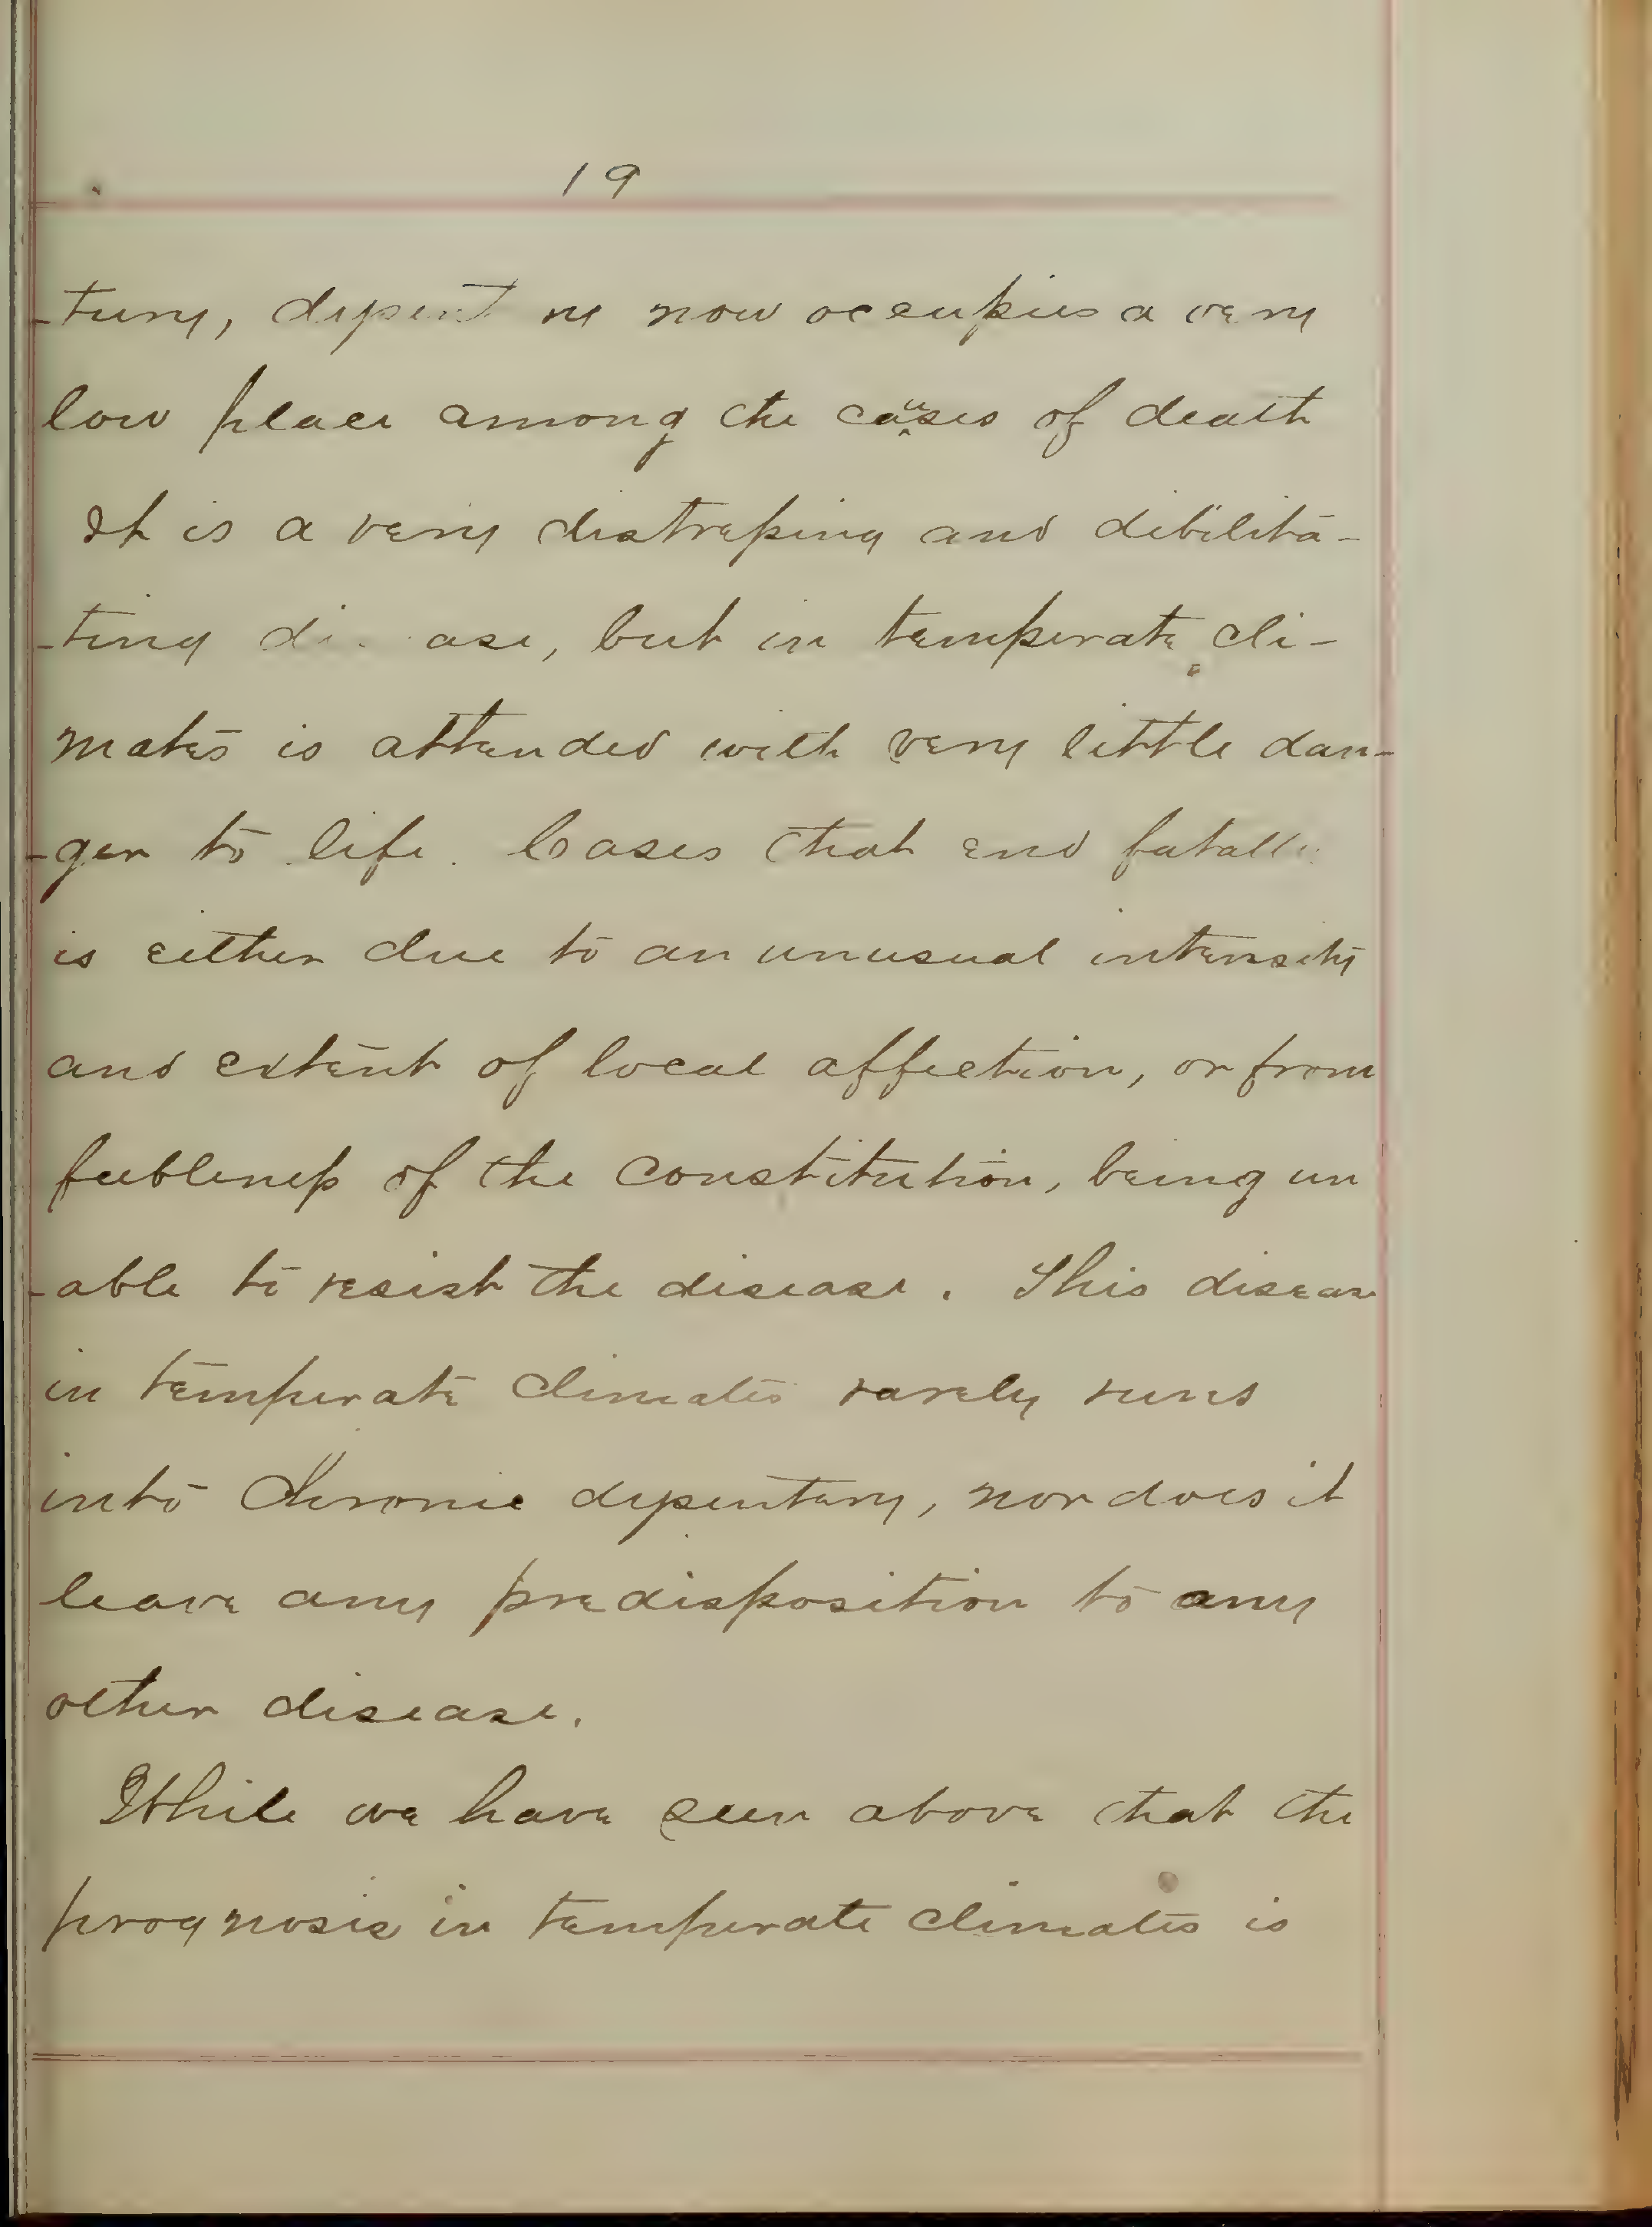 19
-tury, dysentery now occupies a very
low place among the causes of death
It is a very distressing and dibilita-
-ting disease, but in temperate cli-
mates is attended with very little dan-
-ger to life. Cases that end fatally
is either due to an unusual intensity
and extent of local affection, or from
feebleness of the constitution, being un
-able to resist the disease. This disease
in temperate climates rarely runs
into Chronic dysentery, nor does it
leave any predisposition to any
other disease.
While we have seen above that the
prognosis in temperate climates is